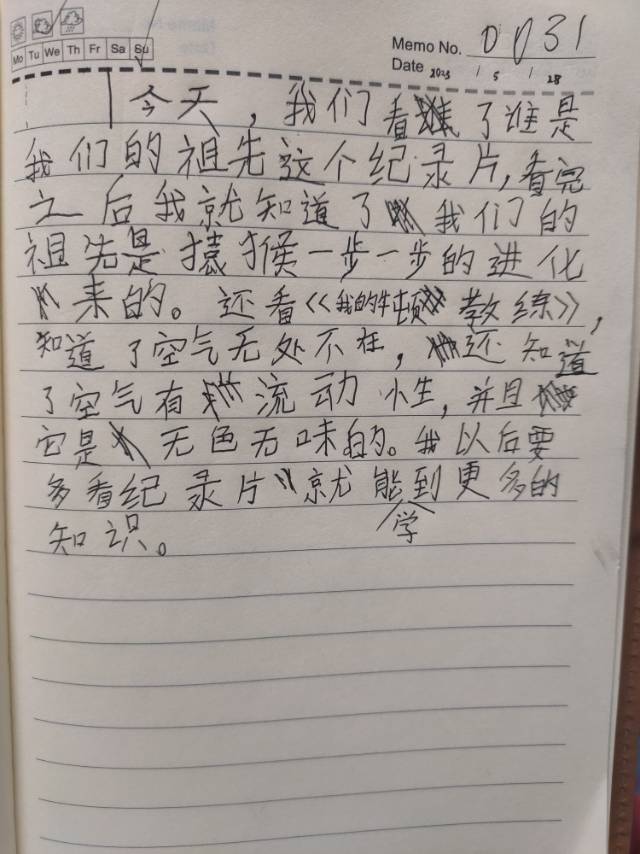 Mo Tu We Th Fr Sa Su
Memo No. 0031
Date 2023 / 5 / 28
今天，我们看了谁是
我们的祖先这个纪录片，看完
之后我就知道了我们的
祖先是猿猴一步一步的进化
来的。还看《我的牛顿教练》，
知道了空气无处不在，还知道
了空气有流动性，并且
它是无色无味的。我以后要
多看纪录片就能学到更多的
知识。